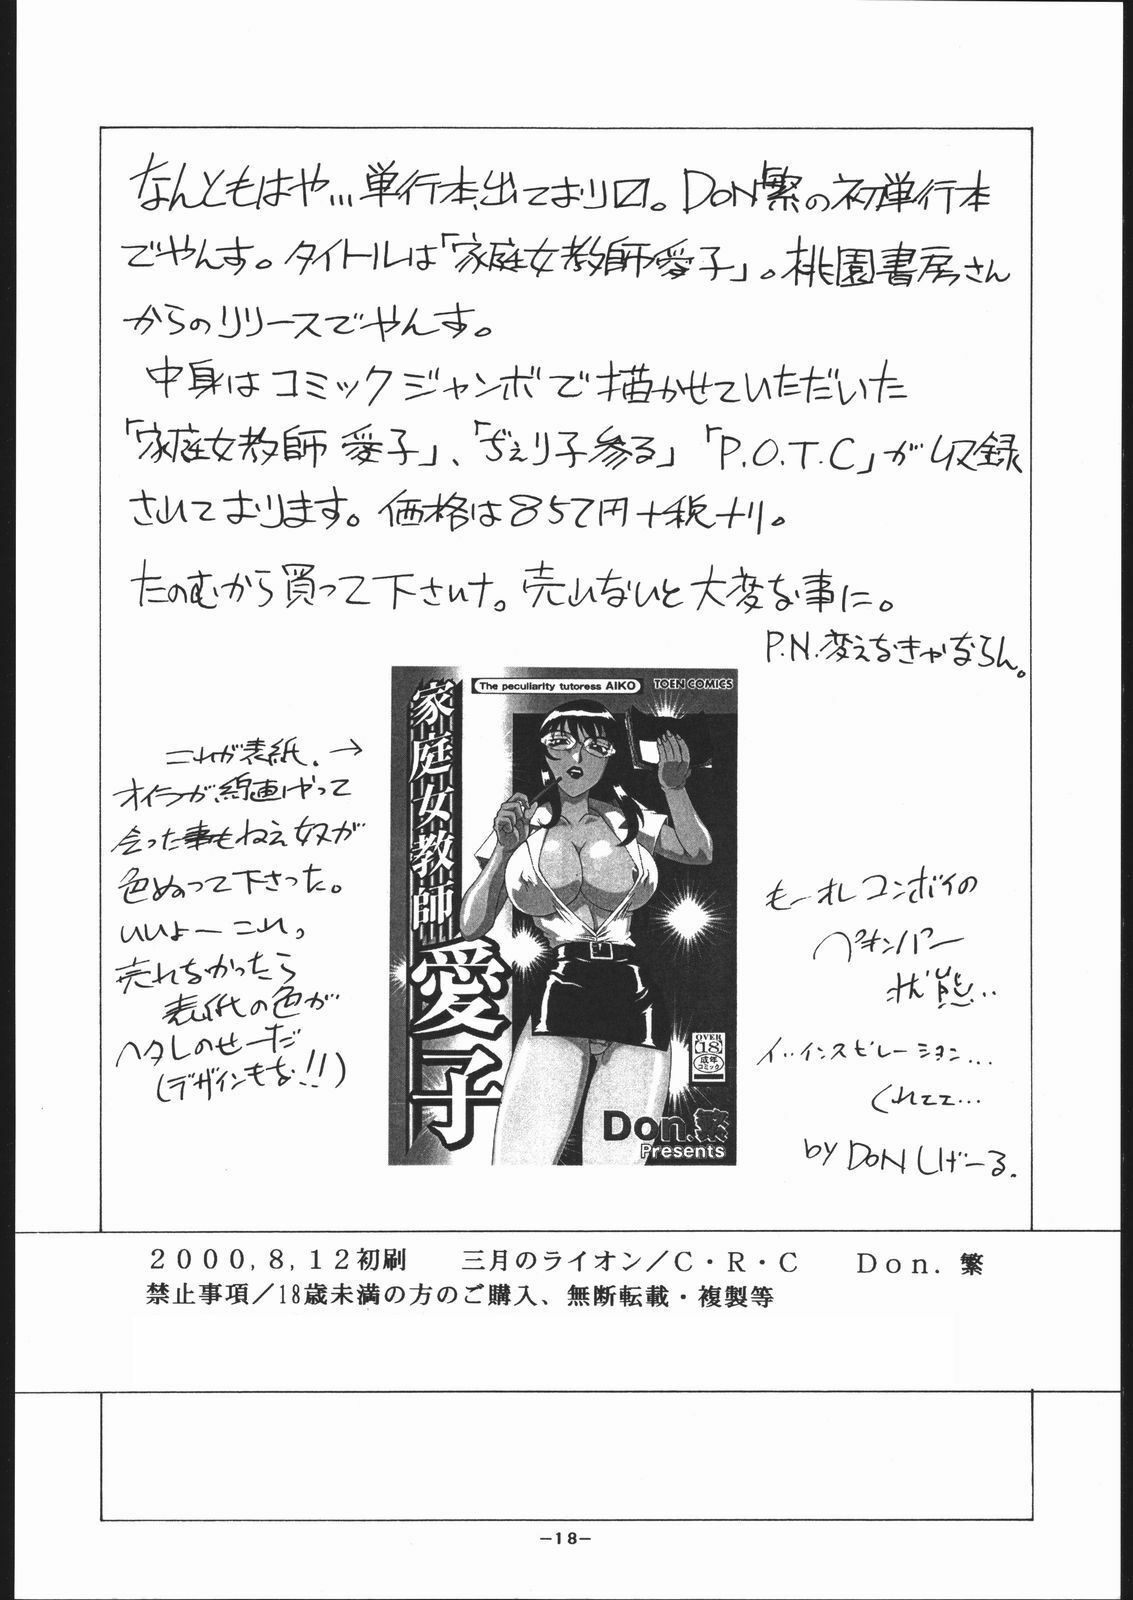 なんともはや…単行本出ており〼。DON繁の初単行本
でやんす。タイトルは「家庭女教師愛子」。桃園書房さん
からのリリースでやんす。
中身はコミックジャンボで描かせていただいた
「家庭女教師 愛子」、「ぢぇり子参る」「P.O.T.C」が収録
されております。価格は857円+税ナリ。
たのむから買って下さいナ。売れないと大変な事に。
P.N.変えなきゃならん。
The peculiarity tutoress AIKO
TOEN COMICS
家庭女教師
愛子
OVER
18
成年
コミック
Don.繁
Presents
これが表紙. →
オイラが線画けやって
会った事もねえ奴が
色ぬって下さった。
いいよー これ,
売れなかったら
表紙の色が
ヘタレのせーだ
(デザインもな!!)
もーオレ コンボイの
ペオンパー
状態…
イ..インスピレーション…
くれてて…
by DON しげーる.
2000,8,12初刷 三月のライオン/C・R・C Don. 繁
禁止事項/18歳未満の方のご購入、無断転載・複製等
-18-